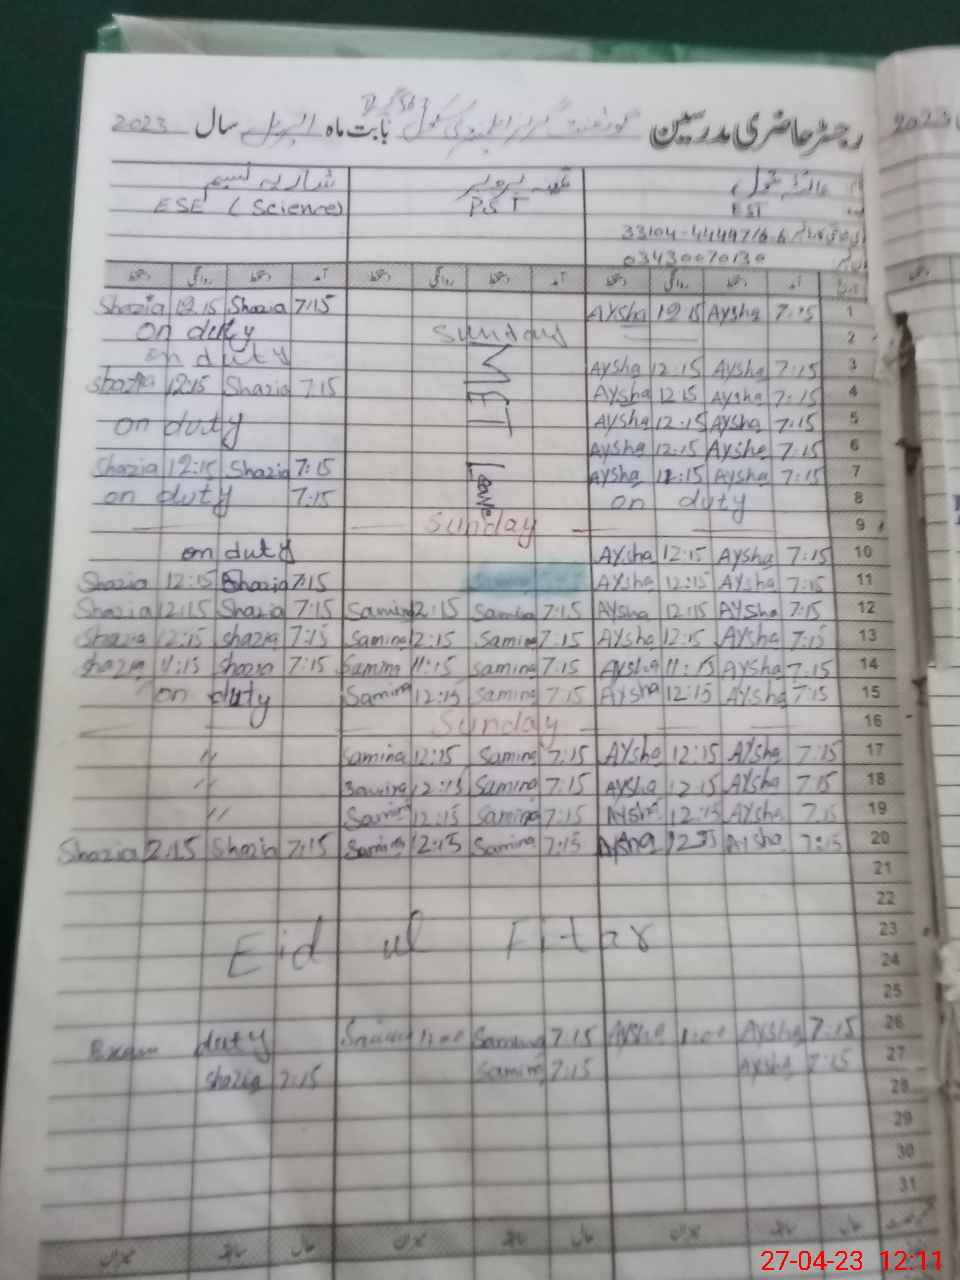 رجسٹر حاضری مدرسین گورنمنٹ گرلز سکول بابت ماہ اپریل سال 2023
2023
شازیہ نسیم
ESE (Science) PST EST
33104-4449716-6
03430070130
Shazia 12.15 Shazia 7:15 AYsha 12 15 AYsha 7:15 1
on duty Sunday 2
on duty AYsha 12:15 AYsha 7:15 3
Shazia 12:15 Shazia 7:15 AYsha 12 15 AYsha 7:15 4
on duty AYsha 12:15 AYsha 7:15 5
AYsha 12:15 AYsha 7:15 6
Shazia 12:15 Shazia 7:15 Leave AYsha 12:15 AYsha 7:15 7
on duty 7:15 on duty 8
Sunday 9
on duty AYsha 12:15 AYsha 7:15 10
Shazia 12:15 Shazia 7:15 AYsha 12:15 AYsha 7:15 11
Shazia 12:15 Shazia 7:15 Samina 12:15 Samina 7:15 AYsha 12:15 AYsha 7:15 12
Shazia 12:15 Shazia 7:15 Samina 12:15 Samina 7:15 AYsha 12:15 AYsha 7:15 13
Shazia 11:15 Shazia 7:15 Samina 11:15 Samina 7:15 AYsha 11:15 AYsha 7:15 14
on duty Samina 12:15 Samina 7:15 AYsha 12:15 AYsha 7:15 15
Sunday 16
〃 Samina 12:15 Samina 7:15 AYsha 12:15 AYsha 7:15 17
〃 Samina 12:15 Samina 7:15 AYsha 12:15 AYsha 7:15 18
〃 Samina 12:15 Samina 7:15 AYsha 12:15 AYsha 7:15 19
Shazia 12:15 Shazia 7:15 Samina 12:15 Samina 7:15 AYsha AYsha 7:15 20
21
22
Eid ul Fitar 23
24
25
Exam duty Samina 1:00 Samina 7:15 AYsha 1:00 AYsha 7:15 26
Shazia 7:15 Samina 7:15 AYsha 7:15 27
28
29
30
31
27-04-23 12:11